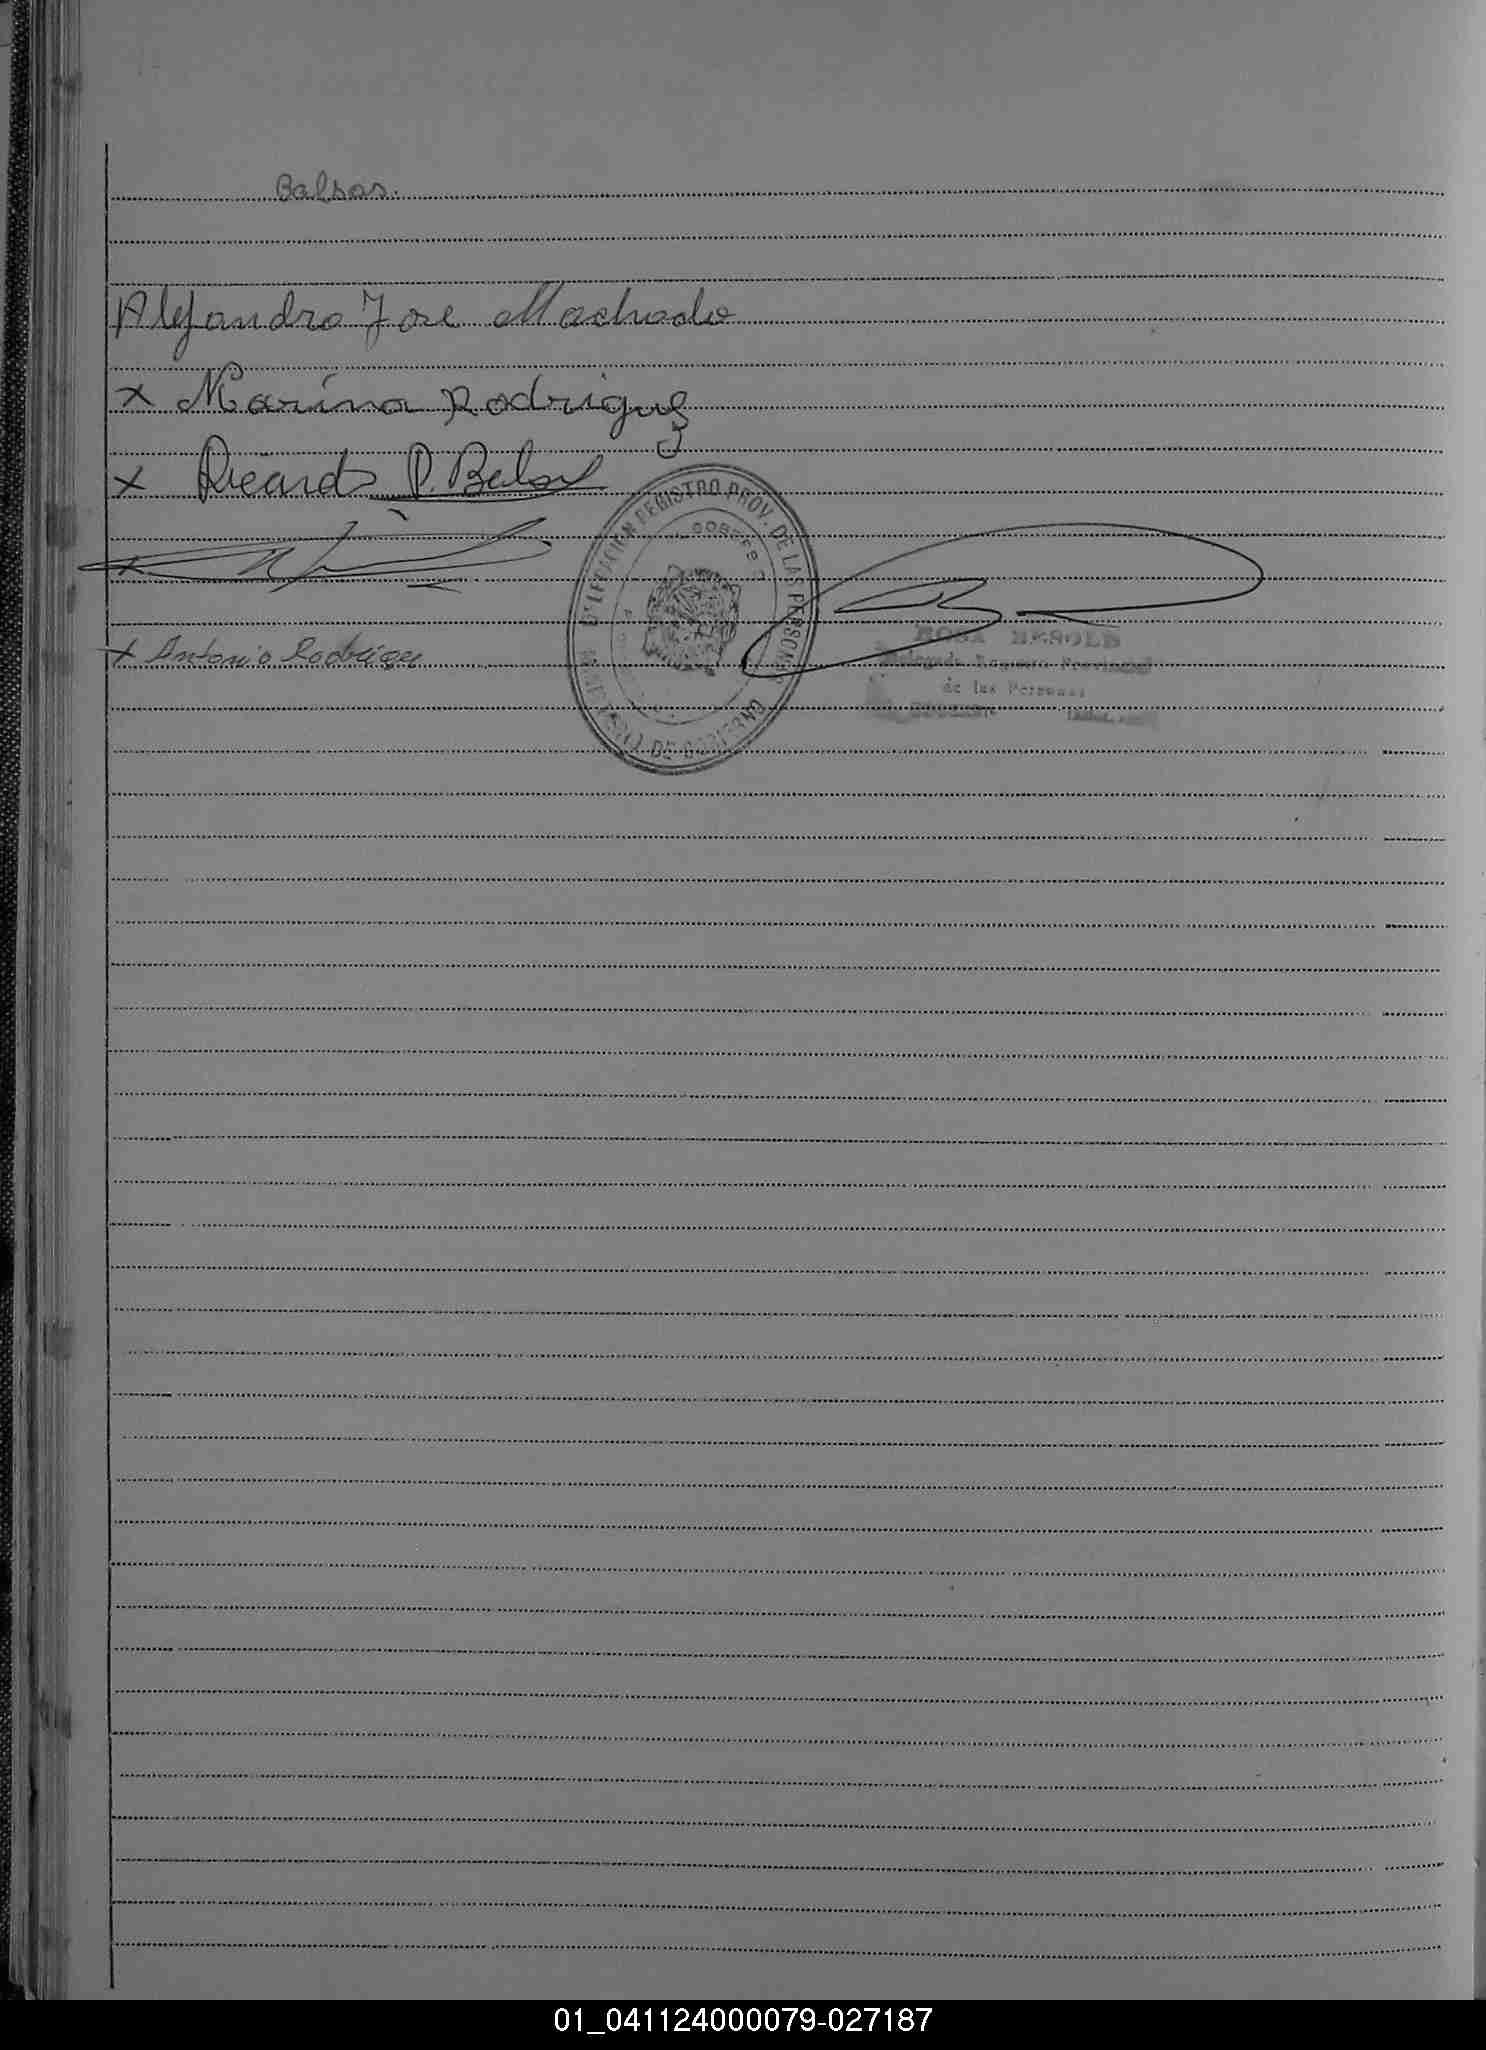 Balsas.
Alejandro Jose Machado
x Marina Rodriguez
x Ricardo P. Balsa
x
x Antonio Rodriguez
DELEGACION REGISTRO PROV. DE LAS PERSONAS
MINISTERIO DE GOBIERNO
ROSA HEROLD
Delegada Registro Provincial
de las Personas
01_041124000079-027187